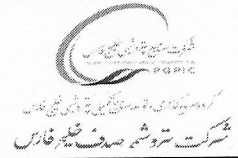 شرکت صنایع پتروشیمی خلیج فارس
PGPIC
گروه سرمایه‌گذاری و توسعه صنایع تکمیلی پتروشیمی خلیج فارس
شرکت پتروشیمی صدف خلیج فارس